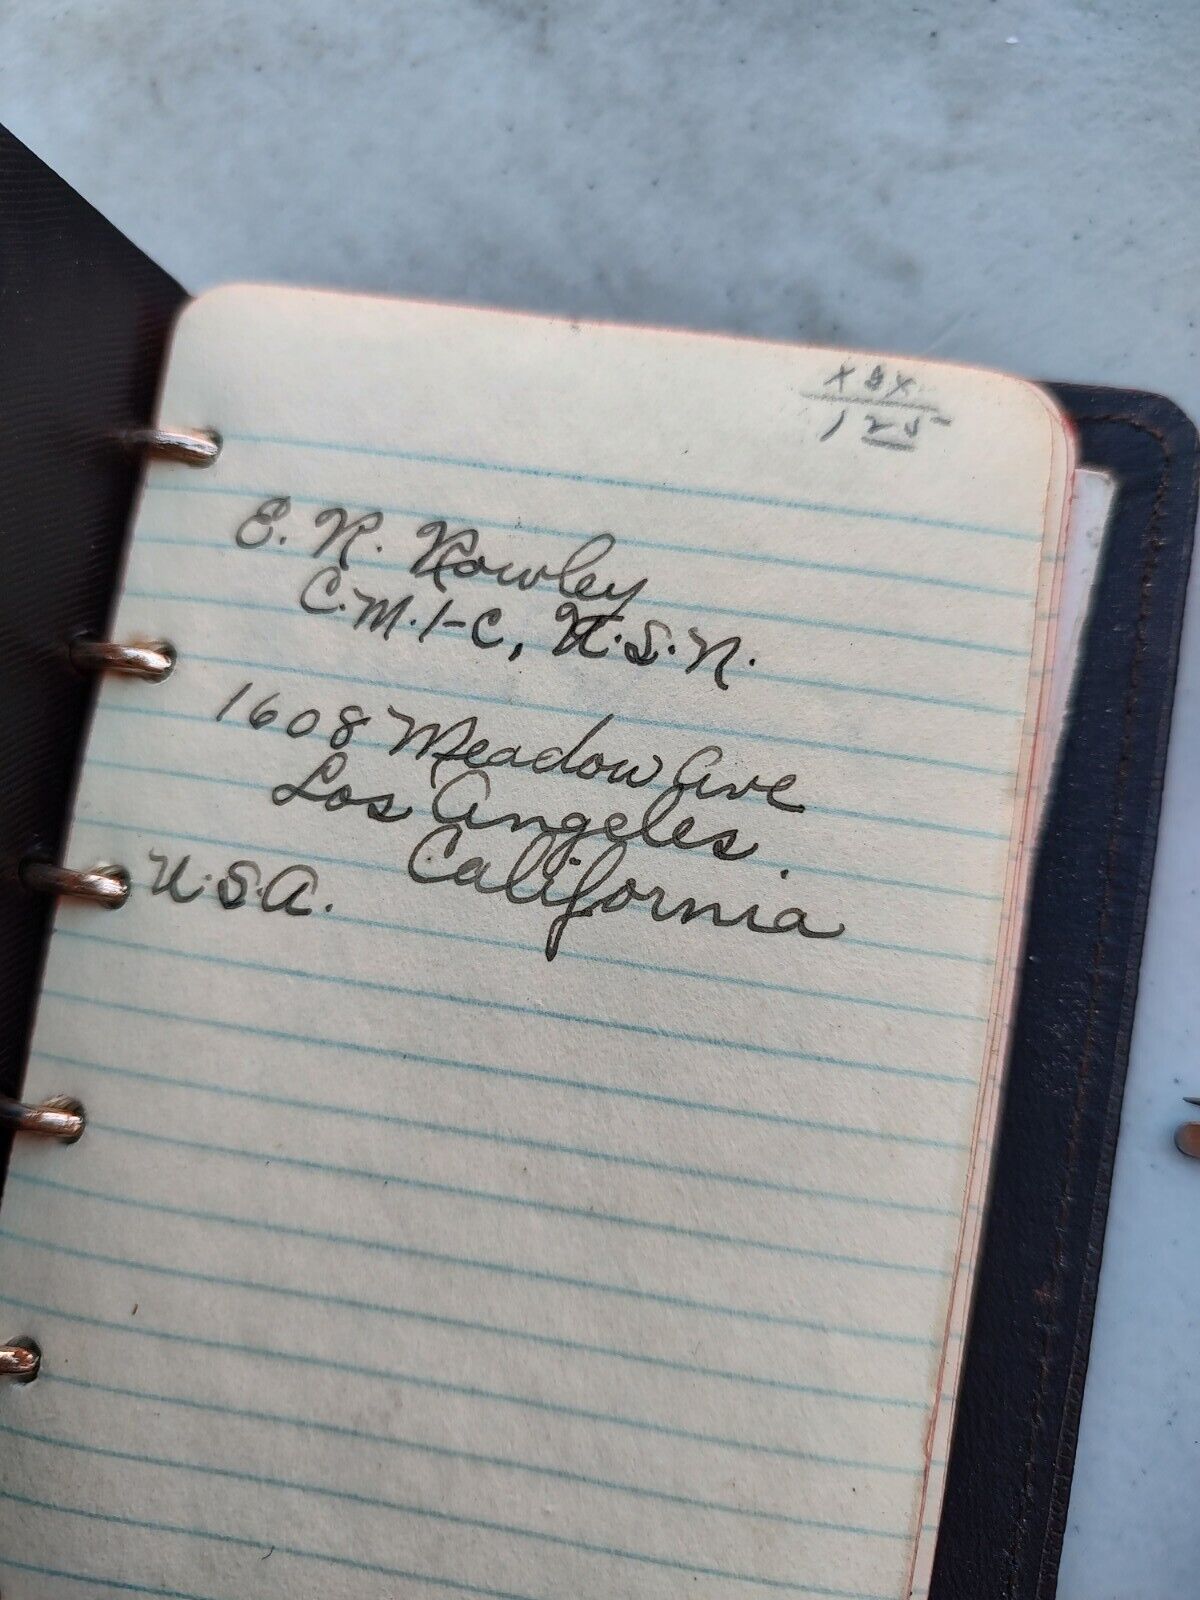 X8X
125
E. R. Rowley
C.M.1-C, U.S.N.
1608 Meadow Ave
Los Angeles
California
U.S.A.